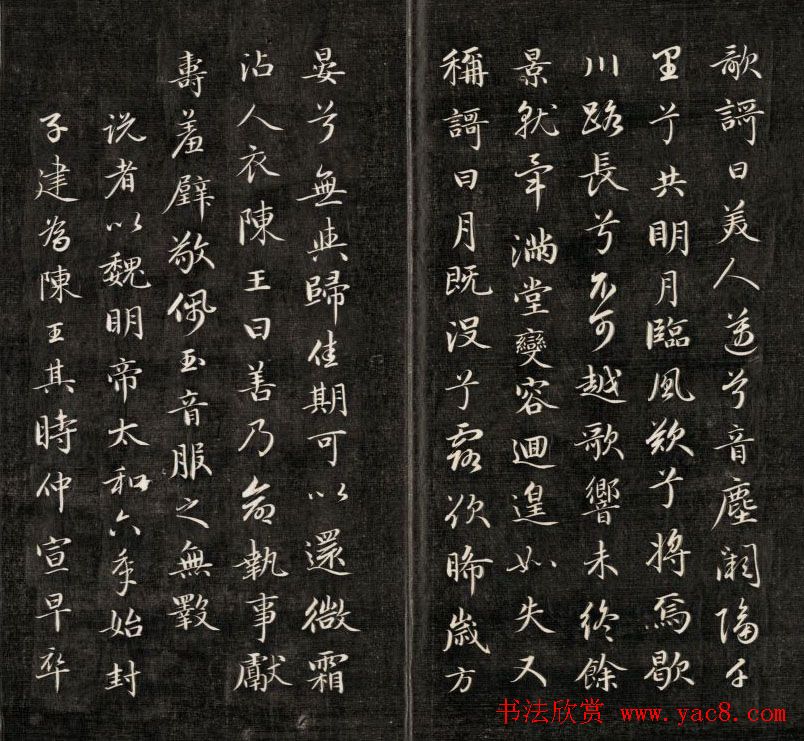 歌謌曰美人邁兮音塵闕隔千
里兮共明月臨風歎兮將焉歇
川路長兮不可越歌響未終餘
景就畢滿堂變容迴遑如失又
稱謌曰月既沒兮露欲晞歲方
晏兮無與歸佳期可以還微霜
沾人衣陳王曰善乃命執事獻
壽羞璧敬佩玉音服之無斁
説者以魏明帝太和六年始封
子建為陳王其時仲宣早卒
书法欣赏 www.yac8.com